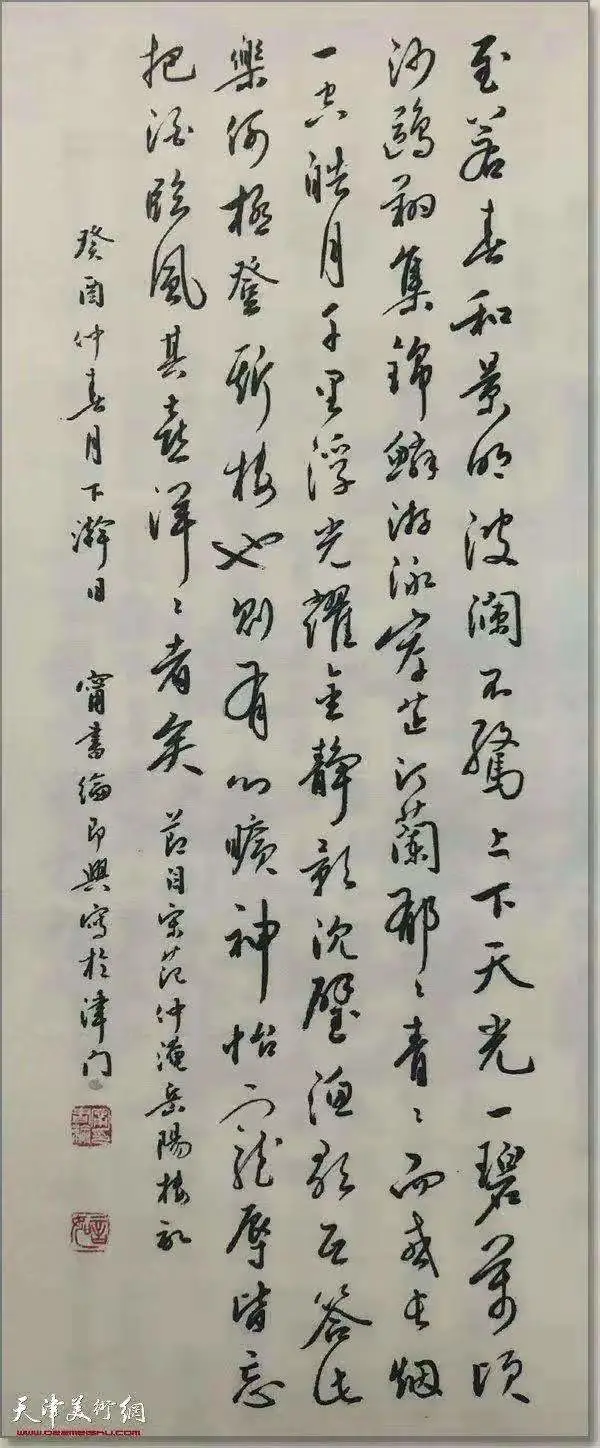 至若春和景明波澜不驚上下天光一碧萬頃
沙鷗翔集錦鱗游泳岸芷汀蘭郁〻青〻而或長烟
一空皓月千里浮光耀金静影沉璧漁歌互答此
樂何極登斯樓也則有心曠神怡寵辱皆忘
把酒臨風其喜洋〻者矣 節自宋范仲淹岳陽樓記
癸酉仲春月下澣日 甯書綸即興寫於津门
天津美術網
www.022meishu.com